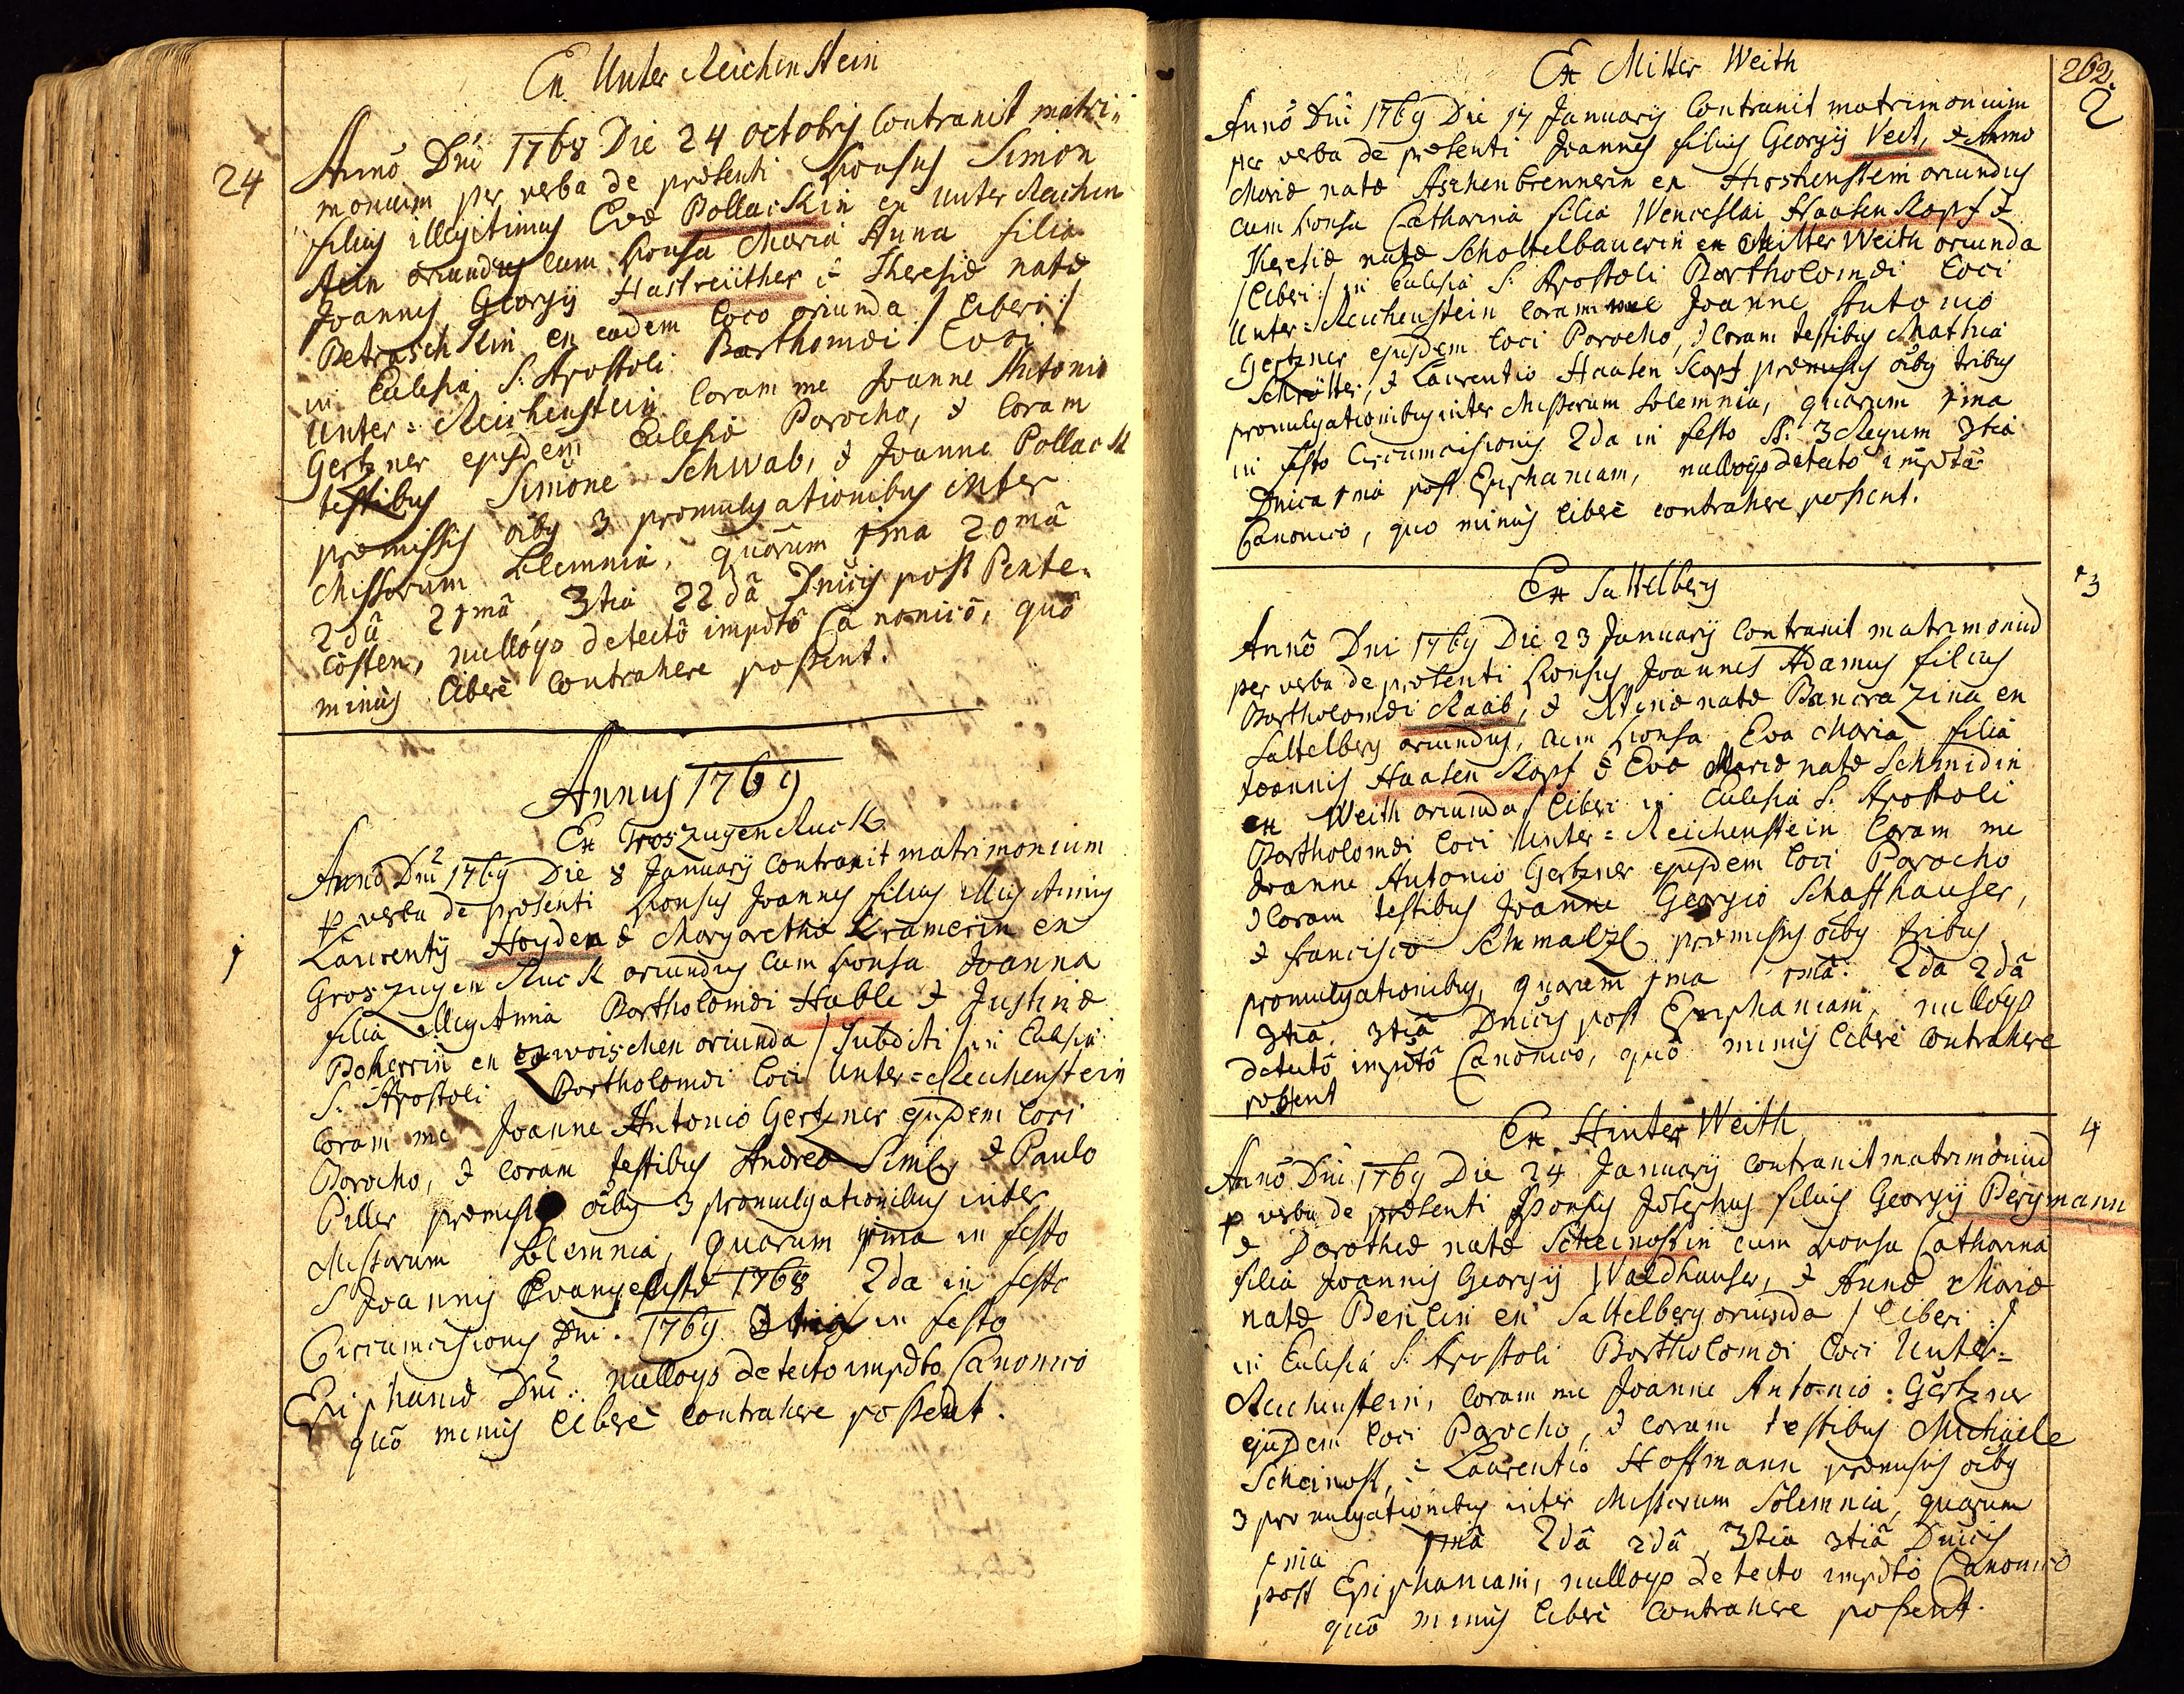 Ex Unter Reichenstein
24
Anno Dni 1768 Die 24 octobris Contraxit matri-
monium per verba de præsenti Sponsus Simon
filius illegitimus Evæ Pollackin ex Unter Reichen
stein oriundus cum sponsa Maria Anna filia
Joannis Georgÿ Hastreüther & Theresiæ natæ
Betraschkin ex eadem loco oriunda / liberi /
in Eclesia S: Apostoli Barthomæi Loci
Unter-Reichenstein Coram me Joanne Antonio
Gertzner ejusdem Eclesiæ Parocho, & Coram
testibus Simone Schwab, & Joanne Pollack
præmissis oibus 3 promulgationibus inter
Missarum Solemnia, quarum 1ma 20mâ
2dâ 21mâ 3tia 22dâ Dnicis post Pente-
costen, nulloqs detectô impdtô Canonicô, quô
minùs liberè contrahere possent.
Annus 1769
Ex Groszugenruck
1
Annô Dni 1769 Die 8 Januarÿ Contraxit matrimonium
p verba de præsenti Sponsus Joannes filius illigitimus
Laurentÿ Hoyden & Margarethæ Kramerin ex
Groszugenruck oriundus cum sponsa Joanna
filia illigitima Bartholomæi Hable & Justinæ
Poherrin ex oriunda / Subditi / in Eclesia
S: Apostoli Bartholomæi loci Unter-Reichenstein
Coram me Joanne Antonio Gertzner ejusdem loci
Parocho, & Coram testibus Andrea & Paulo
Piller præmissis oibus 3 promulgationibus inter
Missarum Solemnia, quarum 1ma in festo
S Joannis Evangelistæ 1768 2da in festo
Circumcisionis Dni. 1769 3tia in festo
Epiphaniæ Dni. nulloqs detecto impdto Canonico
quô minùs liberè contrahere possent.
262.
Ex Mitter Weith
2
Annô Dni 1769 Die 17 Januarÿ Contraxit matrimonium
per verba de præsenti Joannes filius Georgÿ Veit, & Anno
Mariæ natæ Aschenbrennerin ex Hirshenstein oriundus
cum sponsa Catharina filia Wenceslai Haasenkopf &
Theresiæ natæ Schottelbauerin ex Mitter Weith oriunda
/ liberi: / in Eclesia S: Apostoli Bartholomæi loci
Unter-Reichenstein Coram me Joanne Antonio
Gertzner ejusdem loci Parocho, & Coram testibus Mathia
Schrötter, & Laurentio Haasenkopf præmissis oibus tribus
promulgationibus inter Missarum Solemnia, quarum 1ma
in festo Circumcisionis 2da in festo SS. 3 Regum 3tia
Dnica 1ma post Epiphaniam, nulloqs detectô impdtô
Canonico, quo minùs liberè contrahere possent.
Ex Sattelberg
3
Annô Dni 1769 Die 23 Januarÿ Contraxit matrimoniu
per verba de præsenti Sponsus Joannes Adamus filius
Bartholomæi Raab, & natæ Bancrazina ex
Sattelberg oriundus, cum sponsa Eva Maria filia
Joannis Haasenkopf & Evæ Mariæ natæ Schmidin
ex Weith oriunda / liberi in Eclesia S. Apostoli
Bartholomæi loci Unter-Reichenstein Coram me
Joanne Antonio Gertzner ejusdem loci Parocho
& Coram testibus Joanne Georgio Schaffhauser,
& Francisco Schmaltzl præmissis oibus tribus
promulgationibus, quarum 1ma 1mâ. 2da 2dâ
3tia. 3tiâ Dnicis post Epiphaniam, nulloqs
detectô impdtô Canonicô, quô minùs liberè contrahere
possent
Ex Hinter Weith
4
Annô Dni 1769 Die 24 Januarÿ contraxit matrimôniu
p verba de præsenti Sponsus Josephus filius Georgÿ Bergmann
& Dorotheæ natæ Scheinostin cum sponsa Catharina
filia Joannis Georgÿ Waldhauser, & Annæ Mariæ
natæ ex Sattelberg oriunda / liberi :/
in Eclesia S. Apostoli Bartholomæi loci Unter-
Reichenstein, coram me Joanne Antonio: Gertzner
ejusdem loci Parocho, & coram testibus Michäele
Scheinost, & Laurentio Hoffmann præmissis oibus
3 promulgationibus inter Missarum Solemnia, quarum
1ma 1mâ 2dâ 2dâ, 3tia 3tiâ Dnicis
post Epiphaniam, nulloqs detecto impdtô Canonicô
quô minùs liberè contrahere possent.